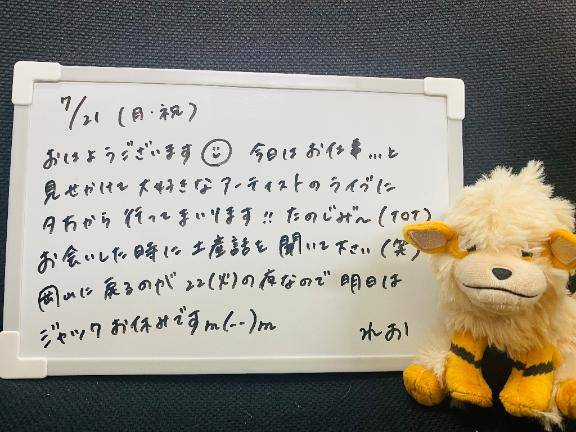 7/21 (月・祝)
おはようございます 今日はお仕事…と
見せかけて大好きなアーティストのライブに
夕方から行ってまいります!! たのしみ〜(TOT)
お会いした時に土産話を聞いて下さい(笑)
岡山に戻るのが22(火)の夜なので明日は
ジャックお休みですm(--)m れお